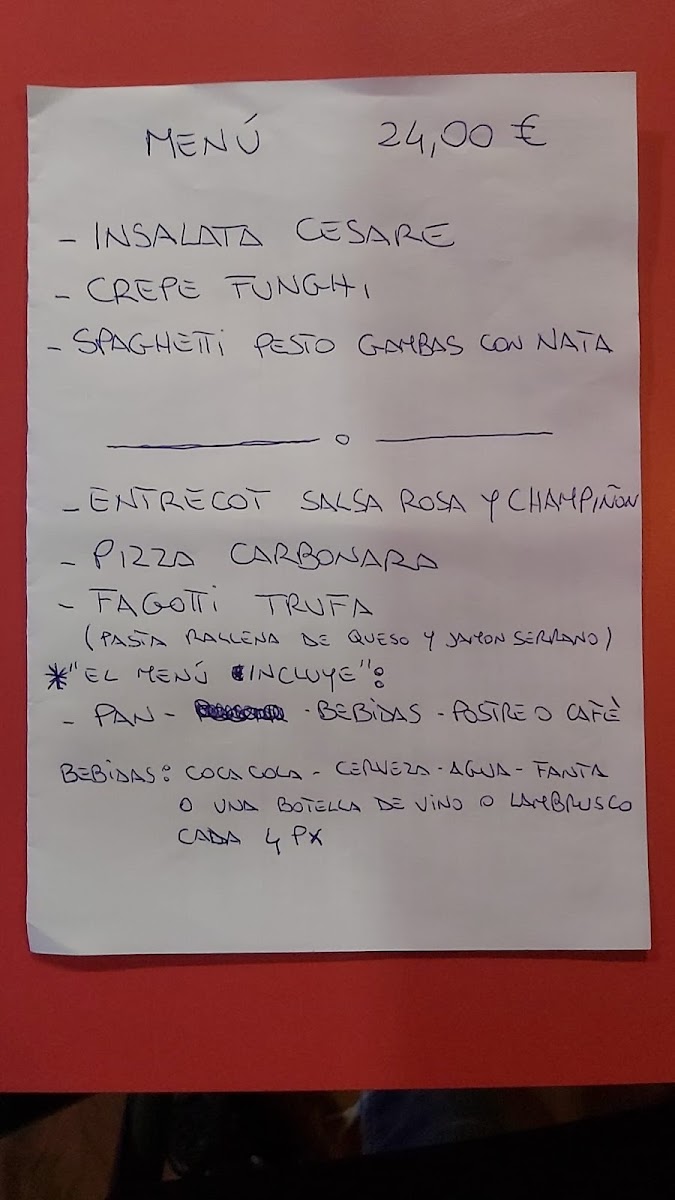 MENÚ 24,00 €
- INSALATA CESARE
- CREPE FUNGHI
- SPAGHETTI PESTO GAMBAS CON NATA
o
- ENTRECOT SALSA ROSA Y CHAMPIÑON
- PIZZA CARBONARA
- FAGOTTI TRUFA
(PASTA RALLENA DE QUESO Y JAMON SERRANO)
*"EL MENÚ INCLUYE":
- PAN - - BEBIDAS - POSTRE O CAFÈ
BEBIDAS: COCA COLA - CERVEZA - AGUA - FANTA
O UNA BOTELLA DE VINO O LAMBRUSCO
CADA 4 PX